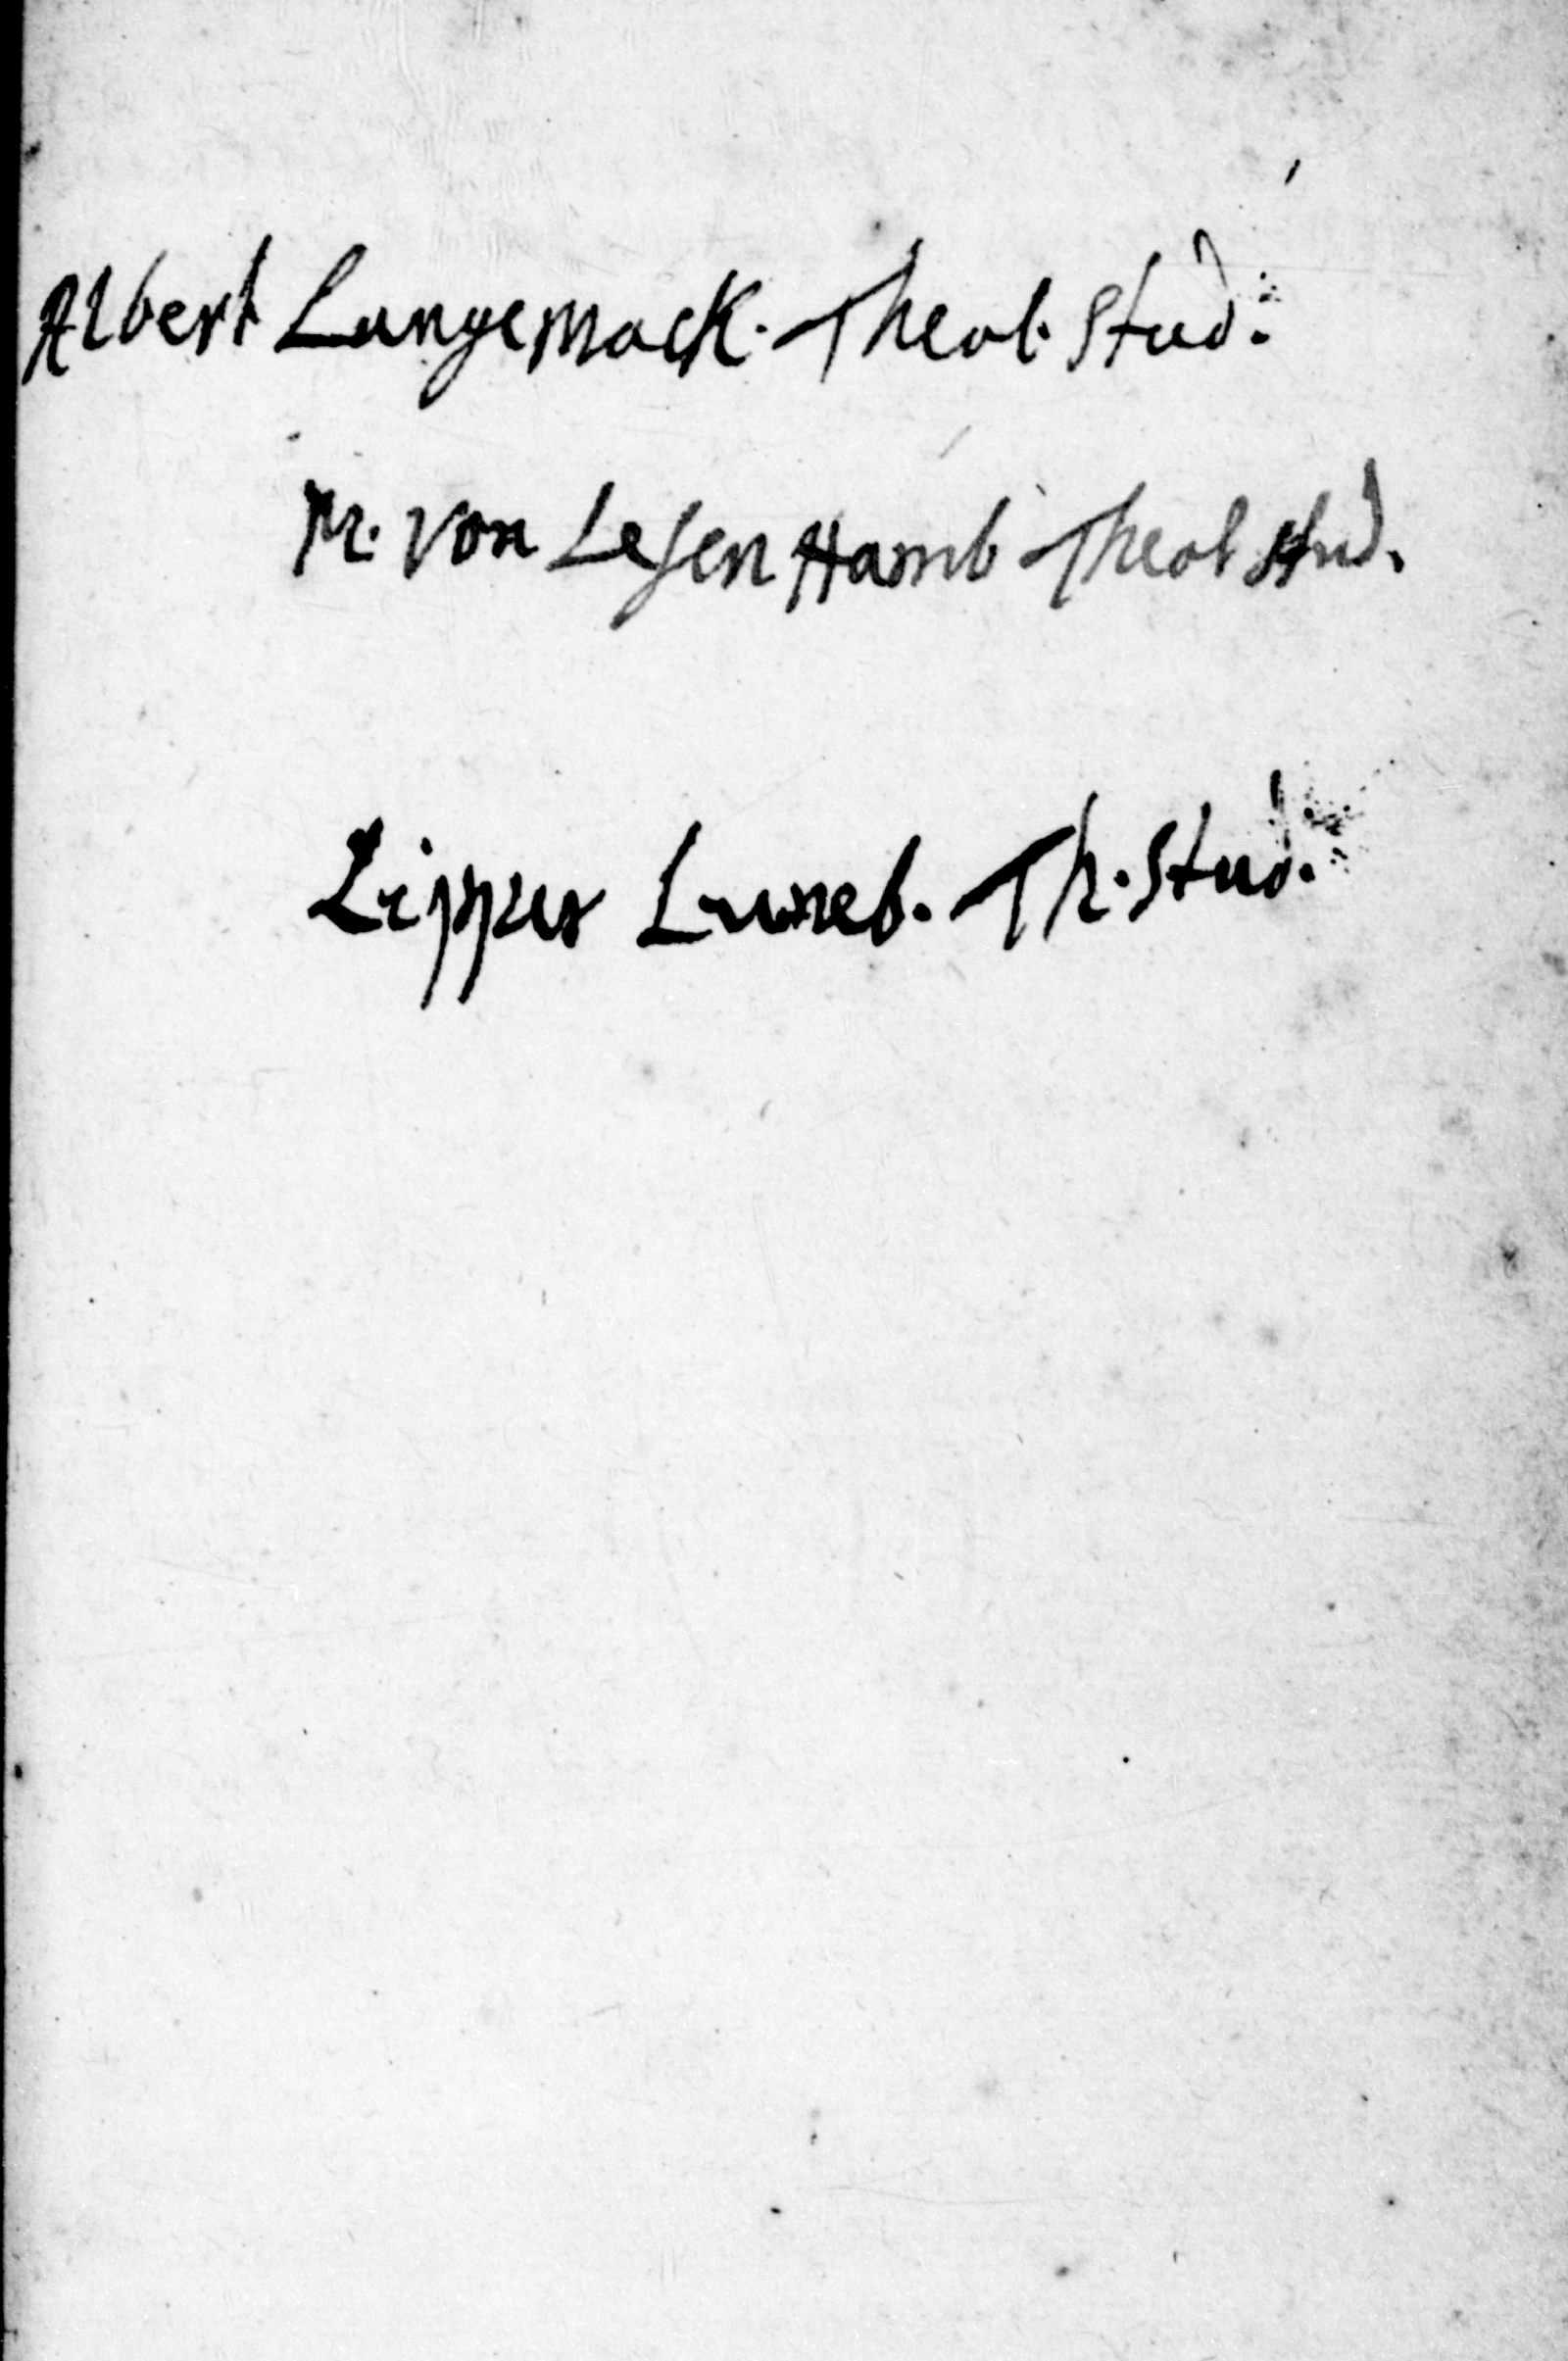 Albert Langemack. Theol. Stud.
M. von Lesen Hamb Theol stud.
Lippius Luneb. Th. Stud.